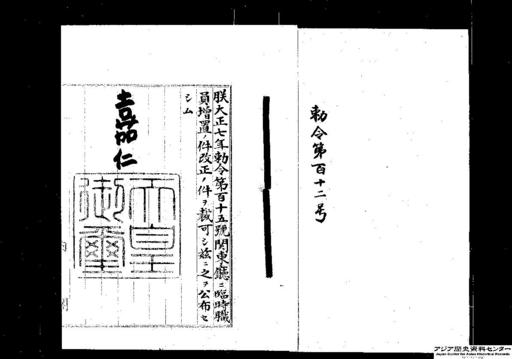 勅令第百十二号
朕大正七年勅令第百十五號關東廳ニ臨時職
員增置ノ件改正ノ件ヲ裁可シ茲ニ之ヲ公布セ
シム
嘉仁
天皇
御璽
内閣
アジア歴史資料センター
Japan Center for Asian Historical Records